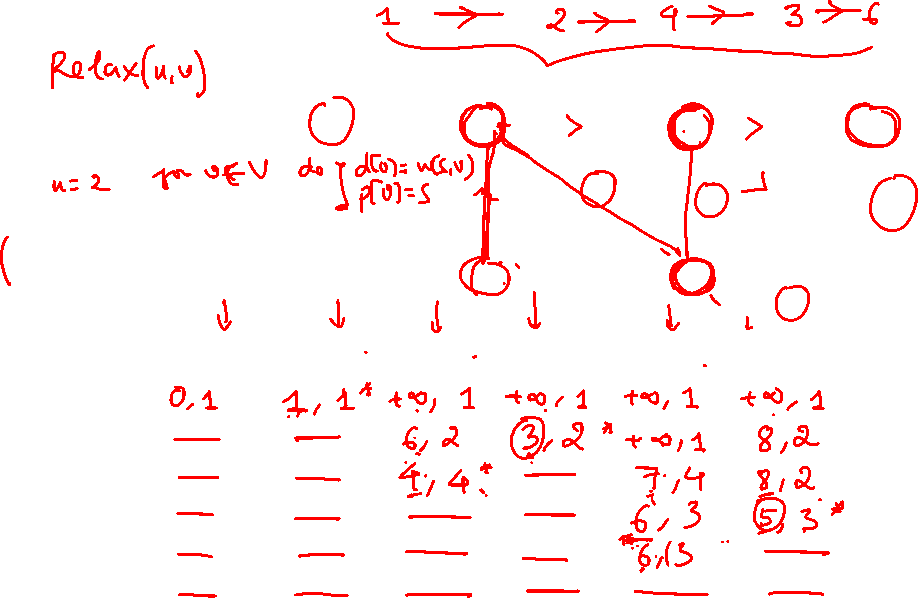 1 → 2 → 4 → 3 → 6
Relax(u,v)
> >
u=2 for v∈V do d[v]=w(s,v)
p[v]=s
0,1 1,1* +∞,1 +∞,1 +∞,1 +∞,1
— — 6,2 3,2* +∞,1 8,2
— — 4,4* — 7,4 8,2
— — — — 6,3 5,3*
— — — — *6,3 —
— — — — — —